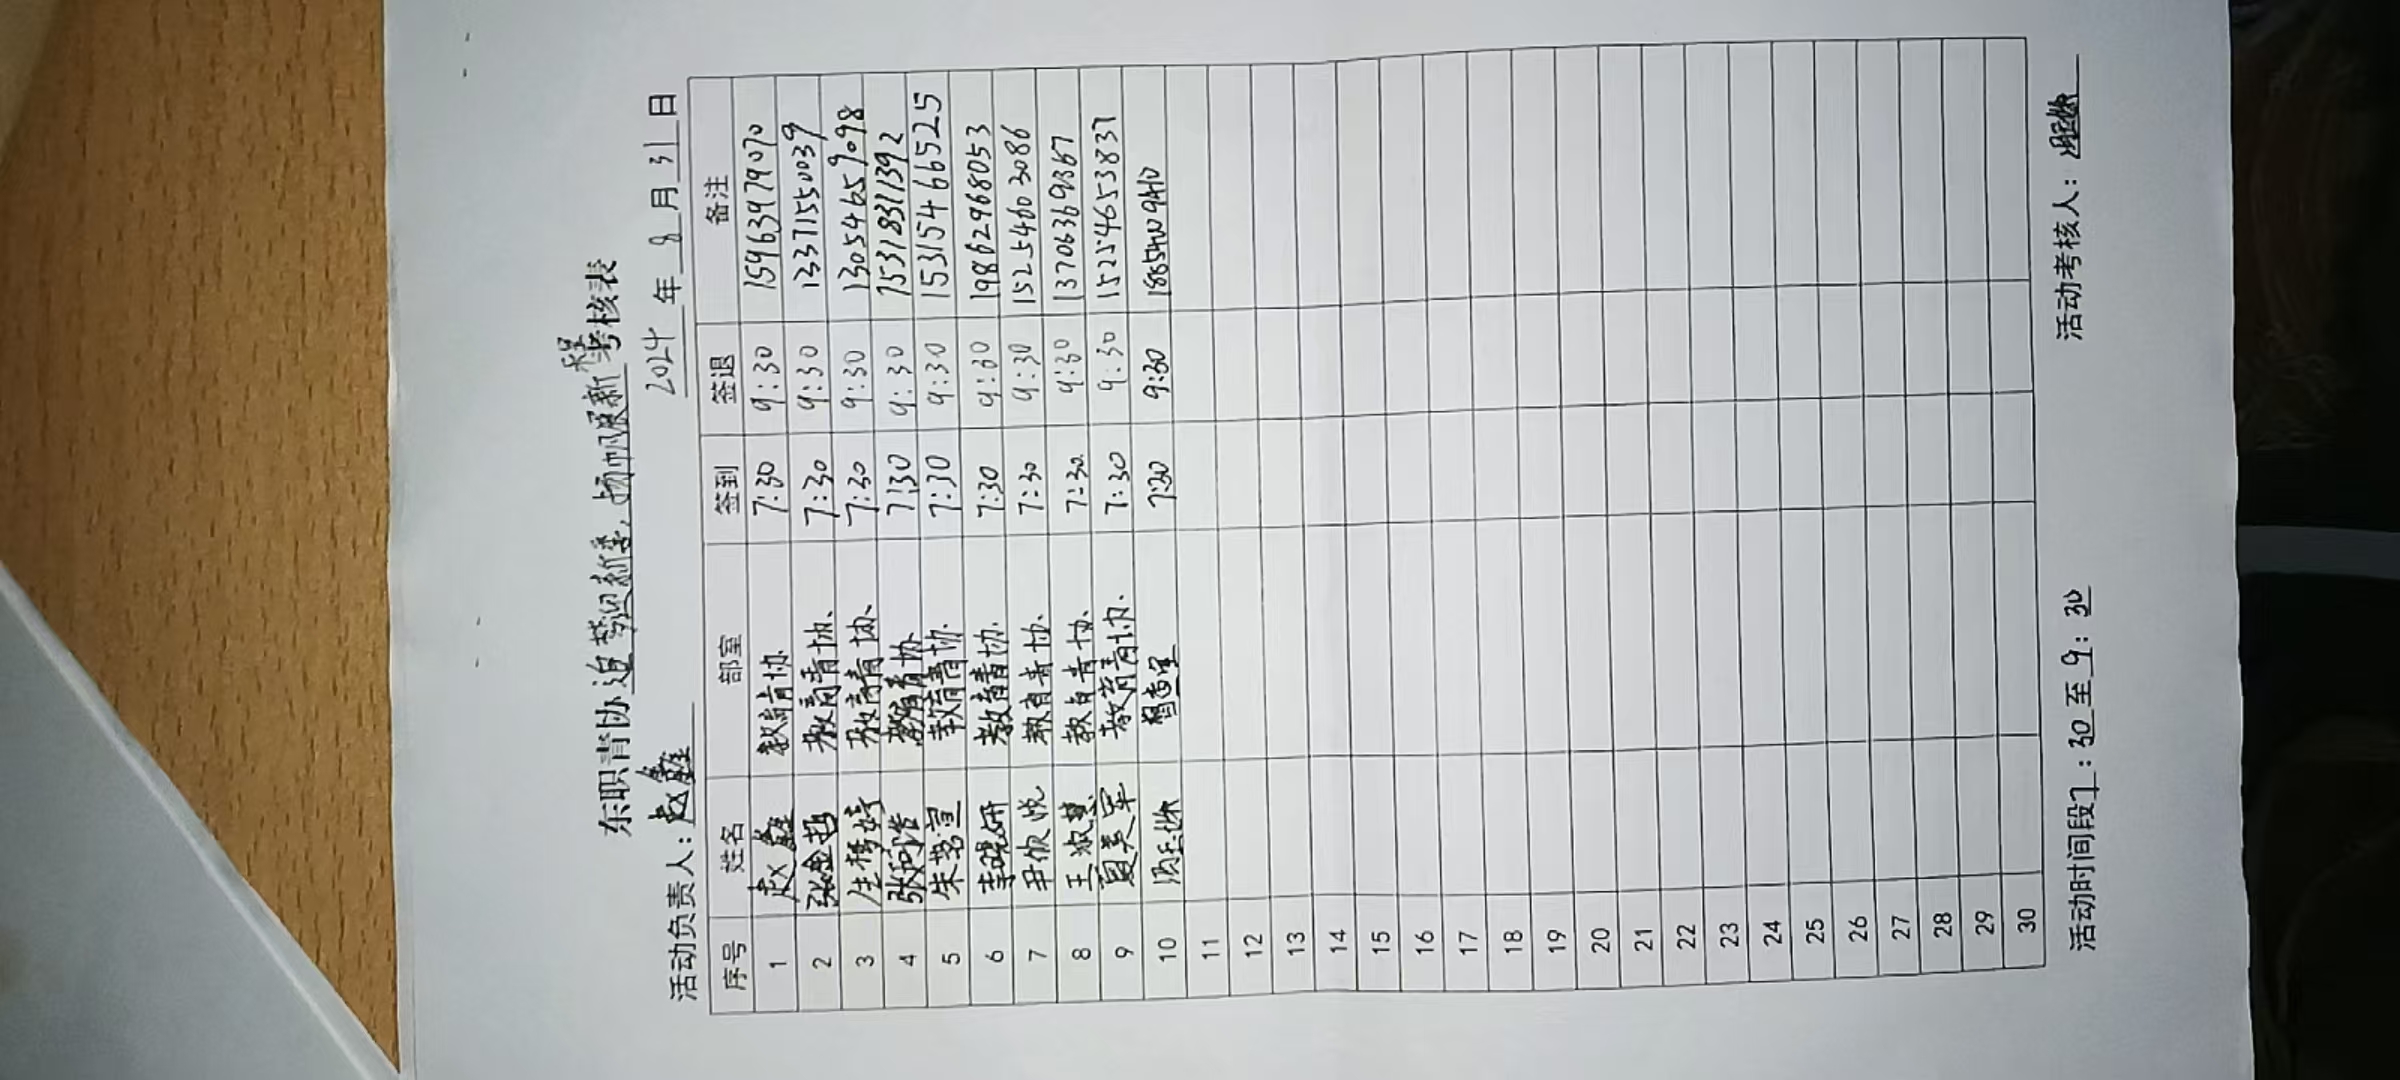 东职青协追梦迎新季,扬帆展新程考核表
活动负责人:赵鑫 2024年8月31日
序号 姓名 部室 签到 签退 备注
1 赵鑫 教育青协 7:30 9:30 15963979070
2 张金哲 教育青协 7:30 9:30 13371550039
3 任梦婷 教育青协 7:30 9:30 13054659098
4 张问浩 教育青协 7:30 9:30 15318311392
5 朱茗萱 教育青协 7:30 9:30 15315466525
6 李晓妍 教育青协 7:30 9:30 19862968053
7 尹欣悦 教育青协 7:30 9:30 15254603086
8 王淑慧 教育青协 7:30 9:30 13706369367
9 夏美军 教育青协 7:30 9:30 15254653837
10 督查室 7:30 9:30
11
12
13
14
15
16
17
18
19
20
21
22
23
24
25
26
27
28
29
30
活动时间段7:30至9:30 活动考核人: